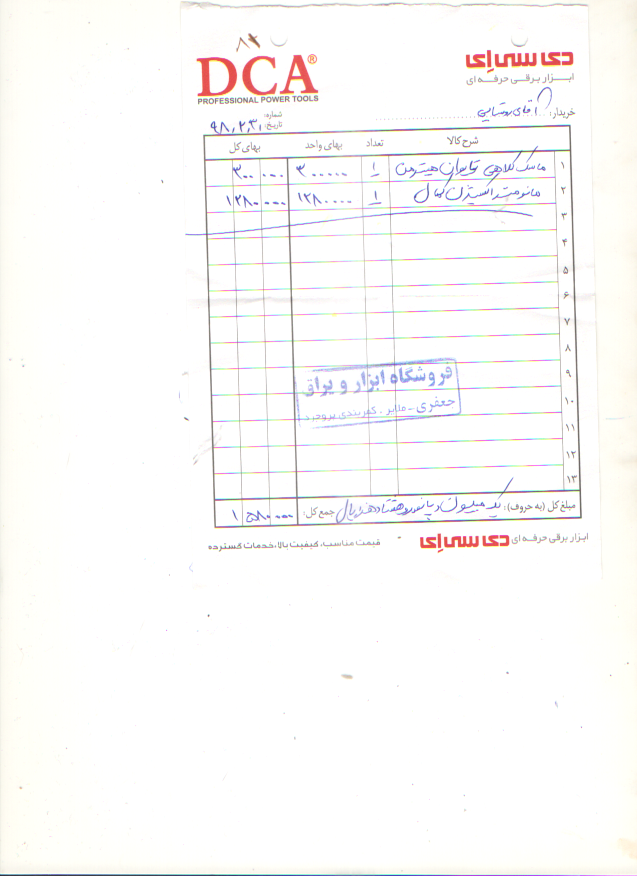 ۸۲
DCA®
PROFESSIONAL POWER TOOLS
دی سی ای
ابـــزار برقــی حرفــه ای
شماره:
تاریخ: ۹۸,۲,۳۱
خریدار: آقای روستایی
شرح کالا تعداد بهای واحد بهای کل
۱ ماسک کلاهی تایوان ۱ ۳۰۰۰۰۰ ۳۰۰ ۰۰۰
۲ مانومتر اکسیژن کمال ۱ ۱۲۸۰۰۰۰ ۱۲۸۰ ۰۰۰
۳
۴
۵
۶
۷
۸
۹
۱۰
۱۱
۱۲
۱۳
فروشگاه ابزار و یراق
جعفری - ملایر ، کمربندی بروجرد
مبلغ کل (به حروف): یک میلیون و پانصد و هشتاد هزار ریال جمع کل: ۱۵۸۰۰۰۰
ابزار برقی حرفــه ای دی سی ای قیمت مناسب، کیفیت بالا، خدمات گسترده